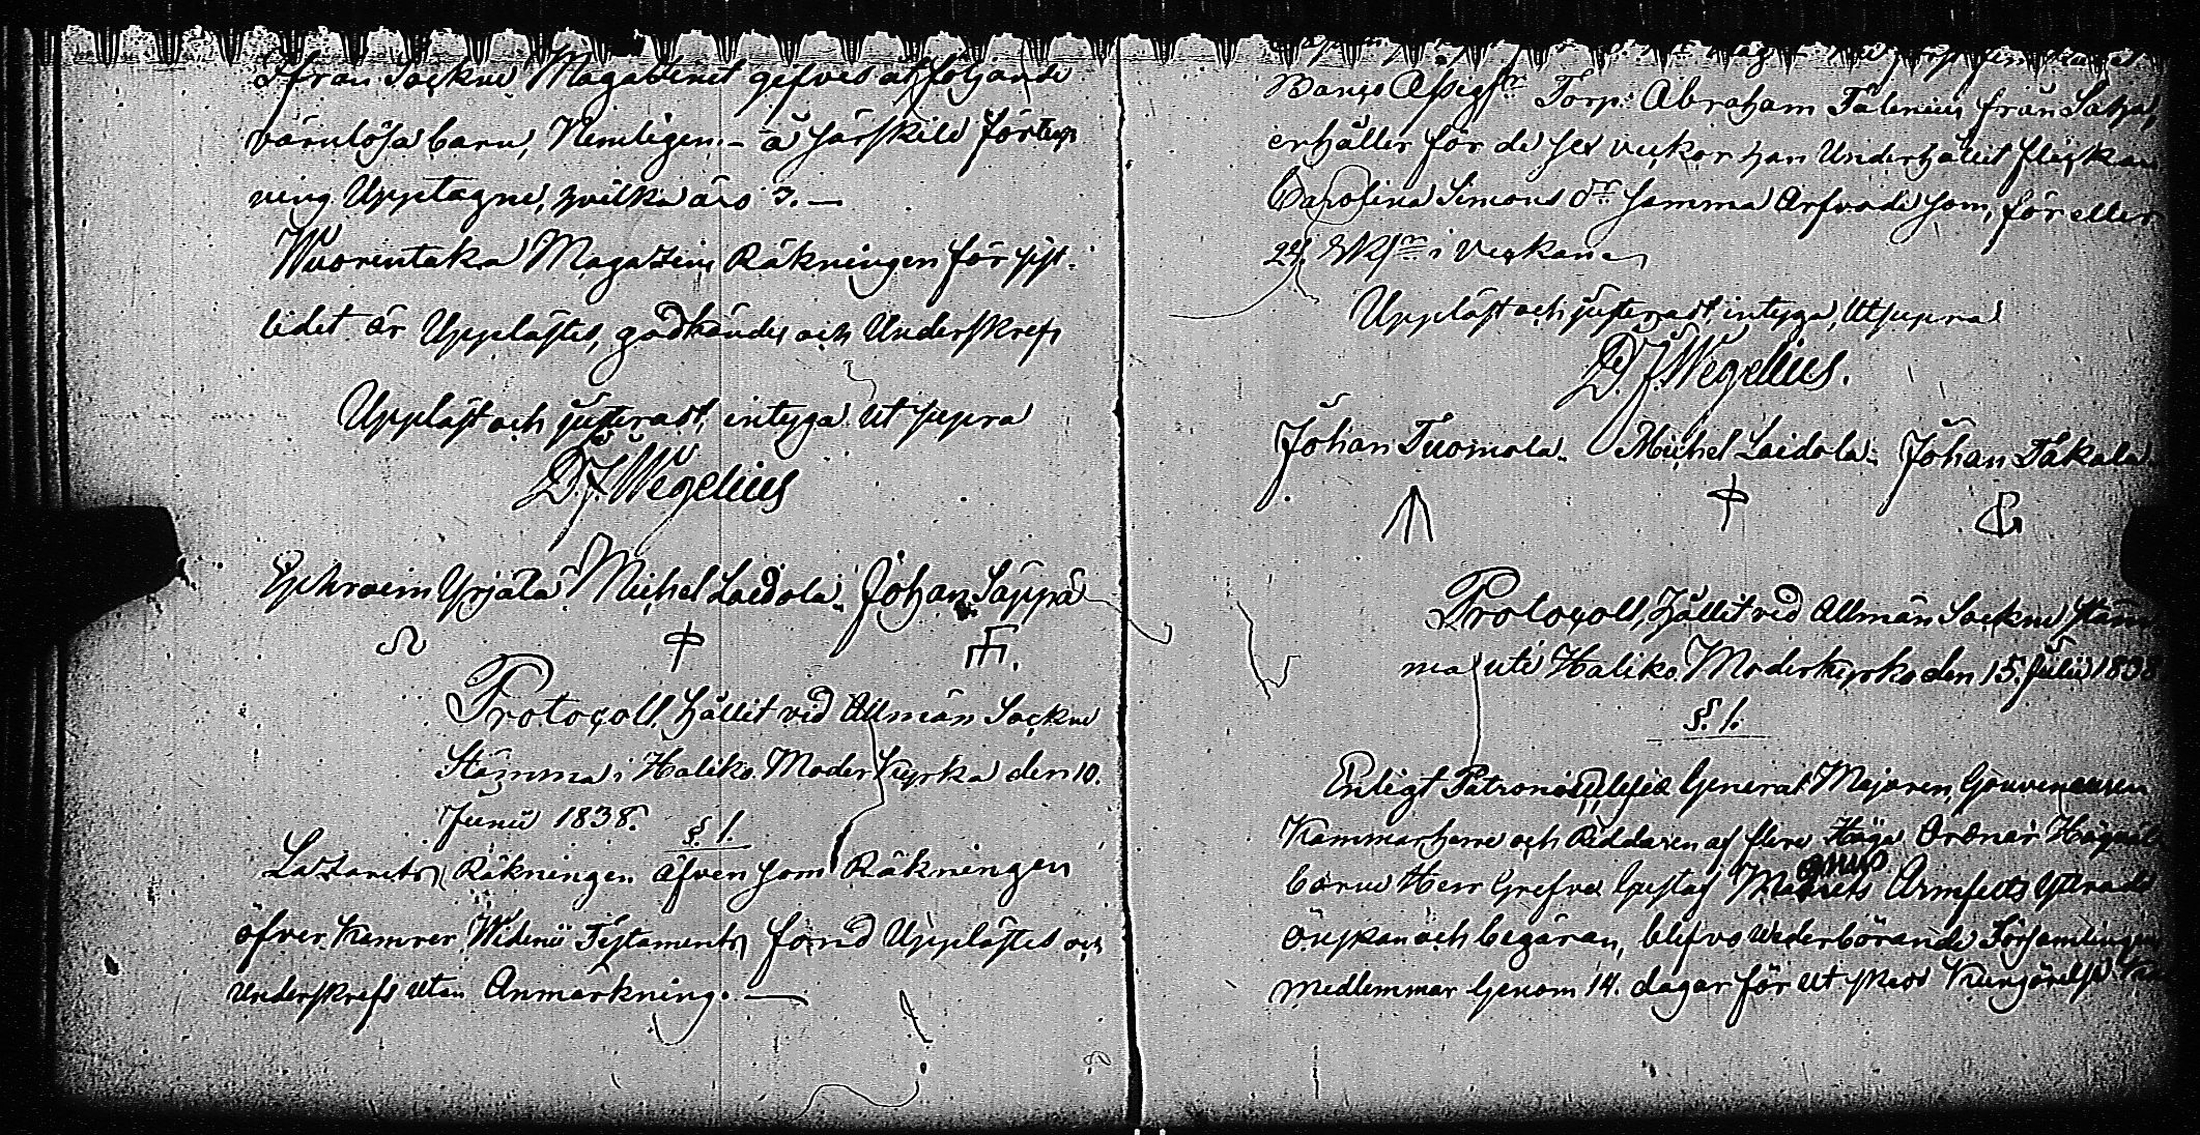 Ifrån Sockne Magazinet gefves åt följande
värnlösa barn, Nemligen: - å särskild förteck
ning Upptagne, hvilka äro 7. —
Wuorentaka Magazins Räkningen för sist-
lidet år Upplästes, godkändes och Underskrefs
Uppläst och justerast, intyga Ut supra
D. J. Wegelius
Ephraim Yrjälä Michel Laidola. Johan Säppä
Protocoll, hållit vid Allmän Sockne
Stämma i Haliko Moder Kyrka den 10.
Junii 1838.
§. 1.
Lazarets Räkningen äfven som Räkningen
öfver Kamrer Widenii Testaments fond Upplästes och
Underskrefs utan Anmärkning. —
Banco Assigr. Torp. Abraham Tälenius från
erhåller för de sex veckor han Underhållit flickan
Carolina Simons dr samma Arfvode som, för eller
24 i Veckan
Uppläst och justerast, intyga, Ut supra
D. J. Wegelius.
Johan Tuomola. Michel Laidola. Johan Takala
Protocoll, hållit vid Allmän Sockne Stäm
ma uti Haliko Moderkyrko den 15. Julii 1838
§. 1.
Enligt General Majoren, Gouverneuren
Kammarherre och Riddaren af flere Höga Ordnar Högväl
borne Herr Grefve Gustaf Magnus Armfelts yttrade
önskan och begäran, blefvo wederbörande Församlingens
medlemmar Genom 14. dagar förut skedd Kungörelse